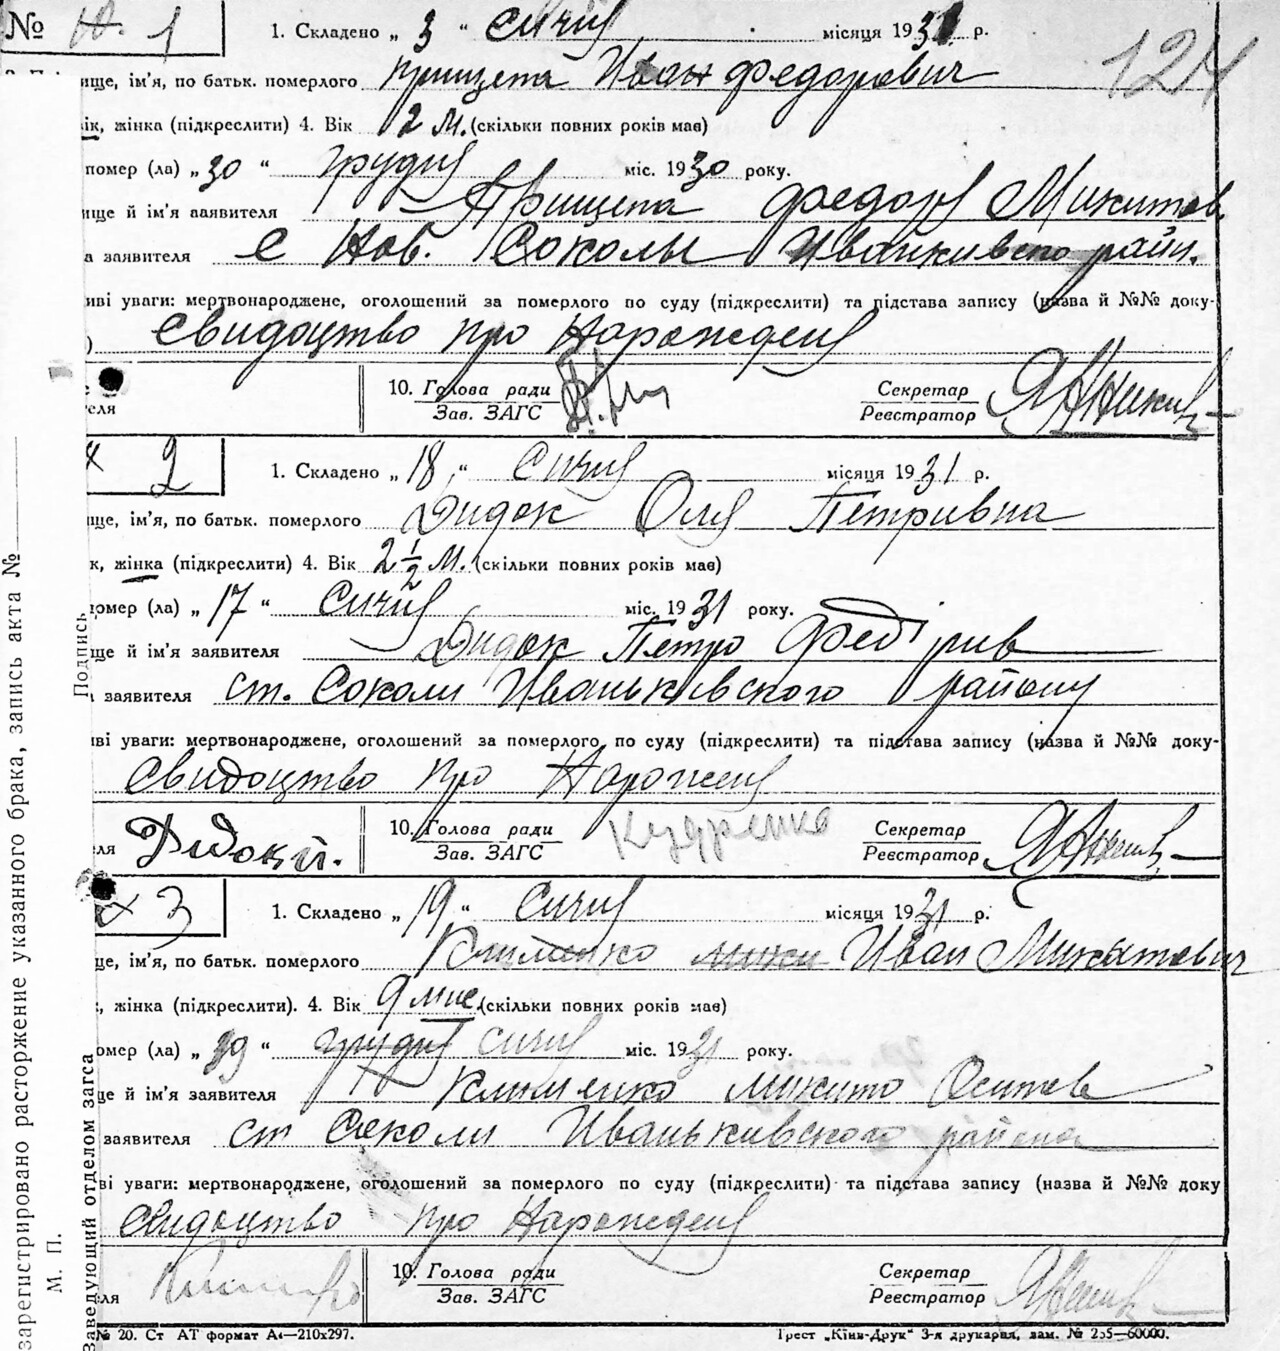 № 1
1. Складено „ 3 “ Сичня місяця 1931 р.
124
ище, ім’я, по батьк. померлого Прищепа Иван Федорович
ік, жінка (підкреслити) 4. Вік 2 м. (скільки повних років має)
помер (ла) „ 30 “ грудня міс. 1930 року.
ище й ім’я заявителя Прищепа Федор Микитов.
а заявителя с Нов. Соколы Иванкивского район.
иві уваги: мертвонароджене, оголошений за померлого по суду (підкреслити) та підстава запису (назва й №№ доку-
) Свидоцтво про Нарожденя
еля
10. Голова ради
Зав. ЗАГС
Секретар
Реєстратор
2
1. Складено „ 18 “ Сичня місяця 1931 р.
ище, ім’я, по батьк. померлого Дидок Оля Петривна
к, жінка (підкреслити) 4. Вік 2 1/2 м. (скільки повних років має)
омер (ла) „ 17 “ Сичня міс. 1931 року.
ще й ім’я заявителя Дидок Петро Федірив
заявителя ст. Соколи Иваньківского району
иві уваги: мертвонароджене, оголошений за померлого по суду (підкреслити) та підстава запису (назва й №№ доку-
Свидоцтво про Нарожденя
ля Дидок П.
10. Голова ради
Зав. ЗАГС
Кудренко
Секретар
Реєстратор
3
1. Складено „ 19 “ Сичня місяця 1931 р.
це, ім’я, по батьк. померлого Клименко мики Иван Микитович
, жінка (підкреслити). 4. Вік 9 мис. (скільки повних років має)
омер (ла) „ 19 “ грудня сичня міс. 1931 року.
це й ім’я заявителя Клименко Микито Осипов
заявителя ст Соколи Иваньківского района
ві уваги: мертвонароджене, оголошений за померлого по суду (підкреслити) та підстава запису (назва й №№ доку
Свидоцтво про Нарожденя
ля
10. Голова ради
Зав. ЗАГС
Секретар
Реєстратор
№ 20. Ст АТ формат А4—210х297.
Трест „Київ-Друк“ 3-я друкарня, зам. № 255—60000.
зарегистрировано расторжение указанного брака, запись акта №
М. П.
Заведующий отделом загса
Подпись